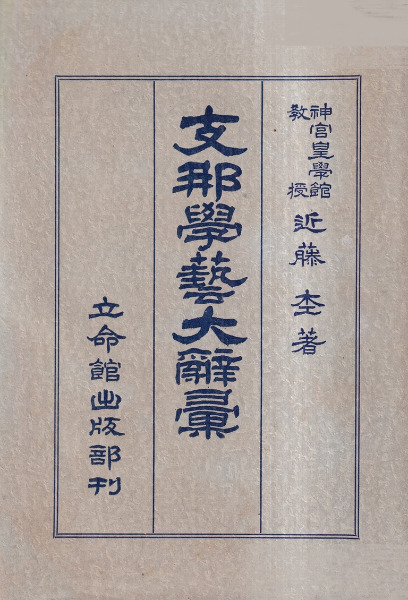 神宮皇學館
教授
近藤杢著
支那學藝大辭彙
立命館出版部刊